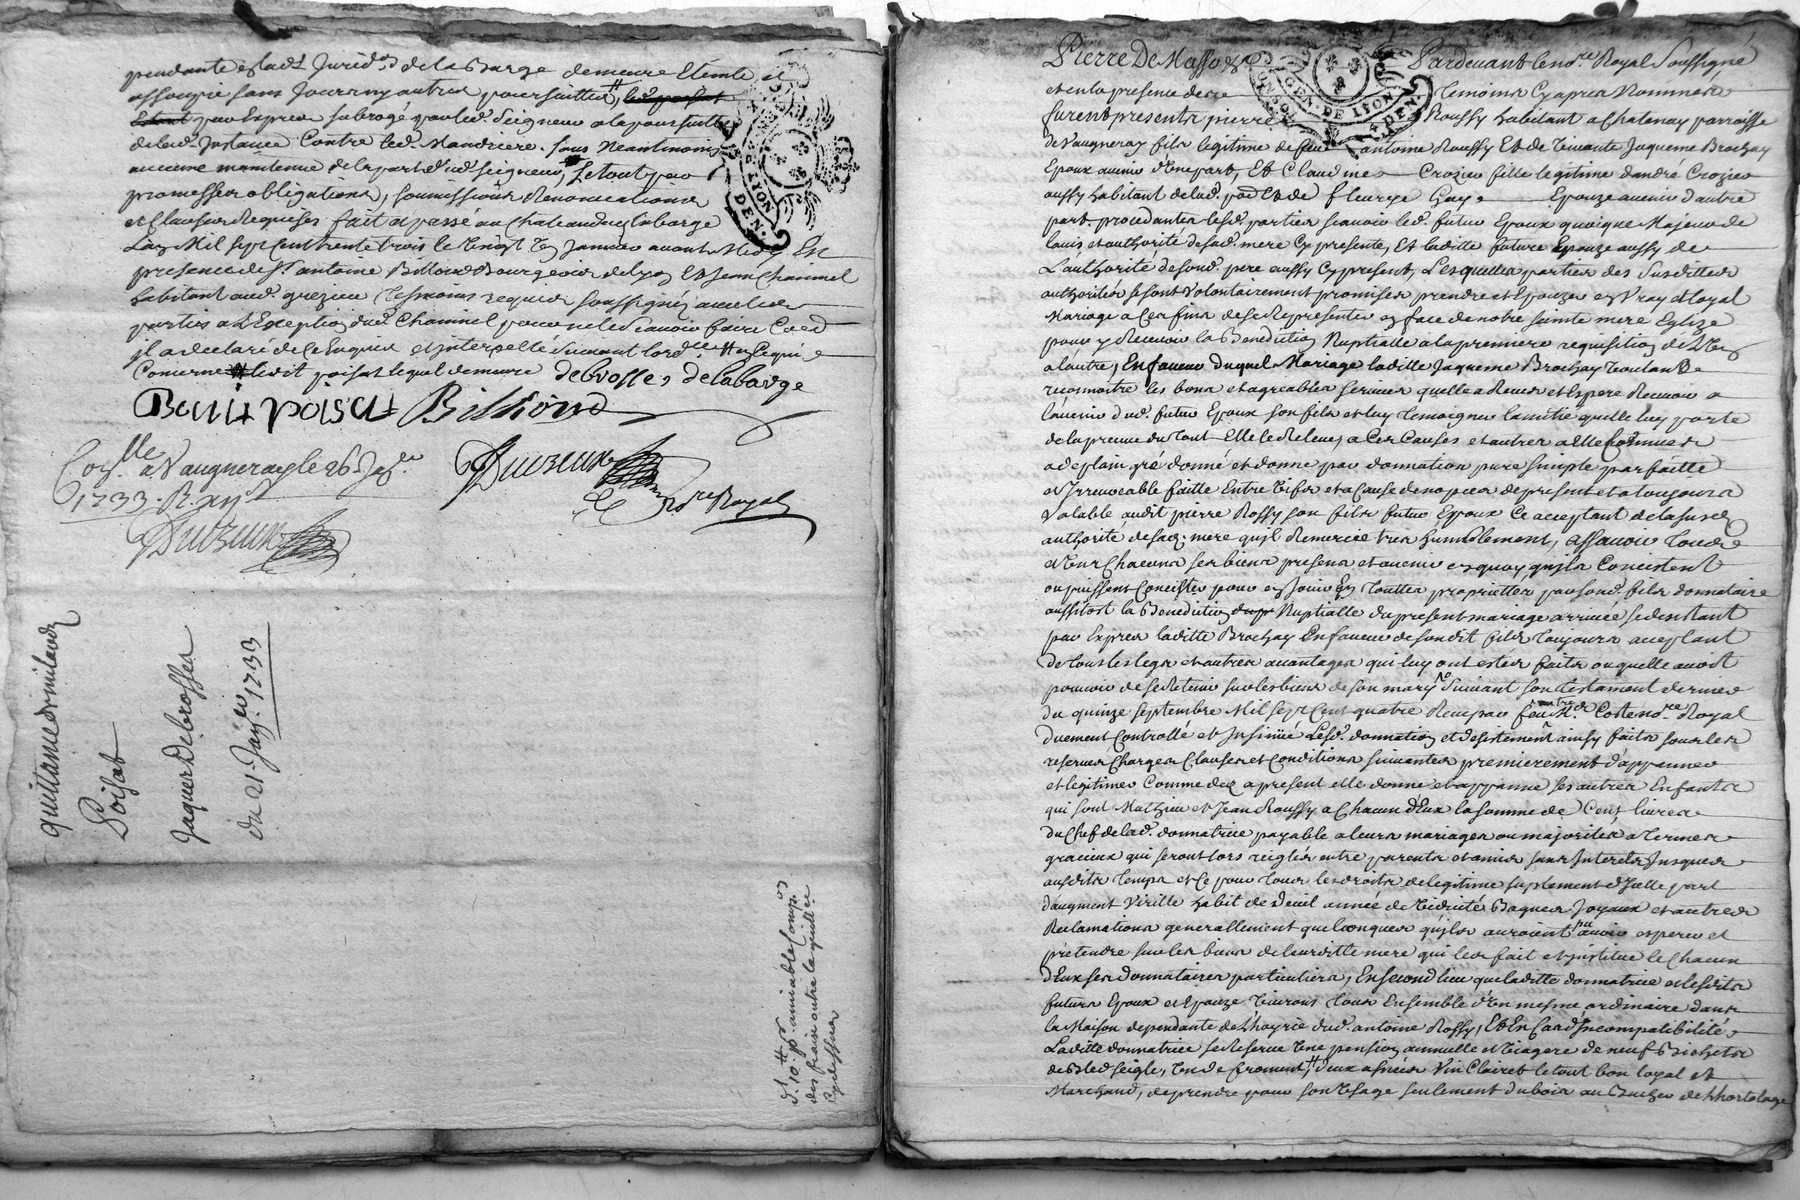 pendante es lad. Jurid.on de la Barge demeure Eteinte et
assoupie sans pouvoir y autres poursuittes
par Exprès subrogé par led. Seigneur a la poursuitte
de lad. Jnstance Contre led. Mandrière. sans Neantmoins
aucune maintenue de la part dud. seigneur, Le tout par
promesses obligations, soumissions Renonciations
et Clauses Requises fait et passé au Chateau de la barge
L'an Mil sept Cent trente trois le vingt Un Janvier avant Midy En
presence de Sr. antoine Billioud Bourgeois de Lyon Et Jean Channel
habitant aud. grezieu Tesmoins requis soussignéz avec les
parties a L'Exception dud. Channel pour ne le sçavoir faire Co'e
jl a declaré de Ce Enquis et interpellé Suivant lord.ce
Concerne ledit poisat lequel demeure debrosses delabarge
Benoit poisat Billioud
Con.llé a Vaugneray le 26 Ja.er
1733. R. xij s.
Duvzeux
Duvzeux
No.re Royal
quittance
Poisat
Jaques Debrosses
du 21. Jan.er 1733
d. 10 s. amiable Comp.on
des frais outre la quitt.ce
Pierre De Masso &a Pardevant le no.re Royal Soussigné
et en la presence des temoins Cy apres Nommés
furent presents pierre Roussy habitant a Chatenay parroisse
de Vaugneray fils legitime de feu antoine Roussy Et de vivante Jaqueme Brochay
Epoux avenir d'Une part, Et Claudine Crozier fille legitime d'andré Crozier
aussy habitant de lad. p.sse Et de fleurye Guye Epouze avenir d'autre
part. procedantes lesd. parties sçavoir led. futur Epoux quoique Majeur de
lavis et authorité de sad. mere Cy presente, Et laditte future Epouze aussy de
L'authorité de sond. pere aussy Cy present, Lesquelles parties des Susdittes
authorités se sont Volontairement promises prendre et Epouzer en Vray et loyal
Mariage a Ces fins de se Representer en face de notre sainte mere Eglize
pour y Recevoir la Benediction Nuptialle a la premiere requisition de L'Un
a lautre, En faveur duquel Mariage laditte Jaqueme Brochay Voulant
reconnoitre les bons et agreables services quelle a Receus et Espere Recevoir a
l'avenir dud. futur Epoux son fils et luy temoigner lamitié quelle luy porte
de la preuve du tout Elle le Releve, a Ces Causes et autres a Elle Connues
a de plain gré donné et donne par donnation pure simple parfaitte
et Jrrevocable faitte Entre Vifs et a Cause de nopces de present et a toujours
Valable audit pierre Rossy son fils futur Epoux Ce acceptant de la susd.
authorité de sad. mere qu'jl Remercie tres humblement, assavoir tous
et Uns Chacuns ses biens presens et avenir en quoy qu'jls Concistent
ou puissent Concister pour en jouir En touttes proprietes par sond. fils donnataire
aussitost la Benediction Nuptialle du present mariage arrivée se desistant
par Exprès laditte Brochay En faveur de son dit fils toujours acceptant
de tous les legs et autres avantages qui luy ont estés faits ou quelle avoit
pouvoir de se Retenir sur les biens de son mary Suivant son testament dernier
du quinze septembre Mil sept Cent quatre Receu par feu M.e Coste no.re Royal
duement Controllé et Jnsinüé Lesd. donnation et desistement ainsy faits sous les
reserves Charges Clauses et Conditions suivantes premierement d'appanner
et legitimer Comme dez a present elle donne et appanne ses autres Enfants
qui sont Mathieu et Jean Roussy a Chacun d'Eux la somme de Cent livres
du Chef de lad. donnatrice payable a leurs mariages ou majorités a termes
gracieux qui seront lors reiglés entre parents et amis sans Jnterets Jusques
ausdits temps et Ce pour tous les droits de legitime suplement d'Jcelle part
d'augment Virille habit de deuil année de Viduité Bagues Joyaux et autres
Reclamations generallement quelconques qu'jls auroient pu avoir esperer et
pretendre sur les biens de leur ditte mere qui les fait et institue le Chacun
d'Eux ses donnataires particuliers, En second lieu que laditte donnatrice et lesdits
futurs Epoux et Epouze Vivront tous Ensemble d'Un mesme ordinaire dans
la Maison dependante de L'hoyrie dud. antoine Rossy, Et En Cas d'Jncompatibilité,
Laditte donnatrice se Reserve Une pension annuelle et Viagere de neuf Bichets
de Bled seigle, Un de froment, deux asnées Vin Clairet le tout bon loyal et
Marchand, de prendre pour son Usage seulement du bois au Bucher de L'hortolage